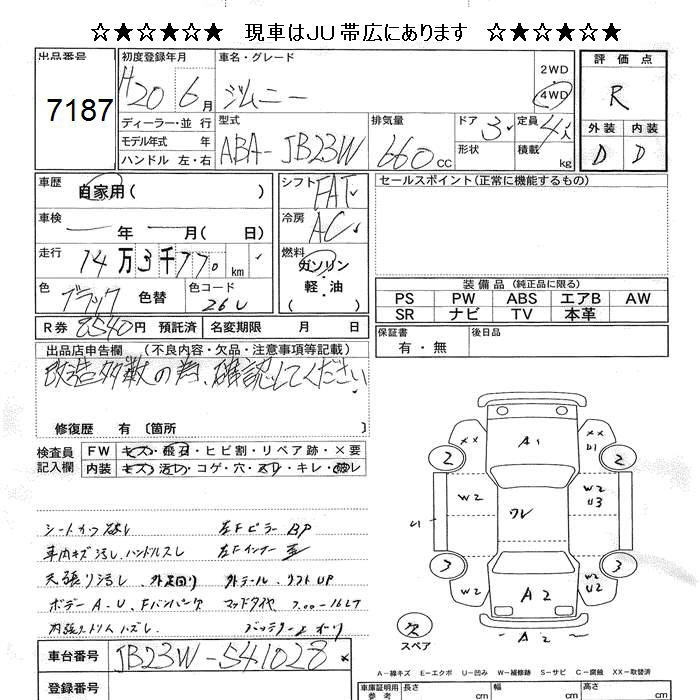 ☆★☆★☆★ 現車はJU帯広にあります ☆★☆★☆★
出品番号 7187
初度登録年月 H20 6月
車名・グレード ジムニー
2WD 4WD
評価点 R
外装 D 内装 D
ディーラー・並 行
モデル年式 年
ハンドル 左・右
型式 ABA-JB23W
排気量 660cc
ドア 3
形状
定員 4人
積載 kg
車歴 自家用( )
車検 年 月( 日)
走行 14万3千770km
色 ブラック 色替 色コード 26U
R券 8540円 預託済 名変期限 月 日
シフト FAT
冷房 AC
燃料 ガソリン
( 軽・油 )
セールスポイント(正常に機能するもの)
装備品 (純正品に限る)
PS PW ABS エアB AW
SR ナビ TV 本革
保証書 有・無
後日品
出品店申告欄 (不良内容・欠品・注意事項等記載)
改造多数の為、確認してください
修復歴 有 〔箇所 〕
検査員記入欄
FW キズ・飛石・ヒビ割・リペア跡・×要
内装 キズ・汚レ・コゲ・穴・スリ・キレ・破レ
車内キズ 汚レ、ハンドルスレ
天張り汚レ
左Fピラー BP
外テール、リフトUP
ボデーA・U、Fバンパー欠
マッドタイヤ 7.00-16LT
車台番号 JB23W-541028
登録番号
A1
XX XX U1
2 2
W2 W2 U3
U1
ワレ
3 3
W2 W2 U2
A2
A2
欠 スペア
A-線キズ E-エクボ U-凹み W-補修跡 S-サビ C-腐蝕 XX-取替済
車庫証明用参考 長さ cm 幅 cm 高さ cm